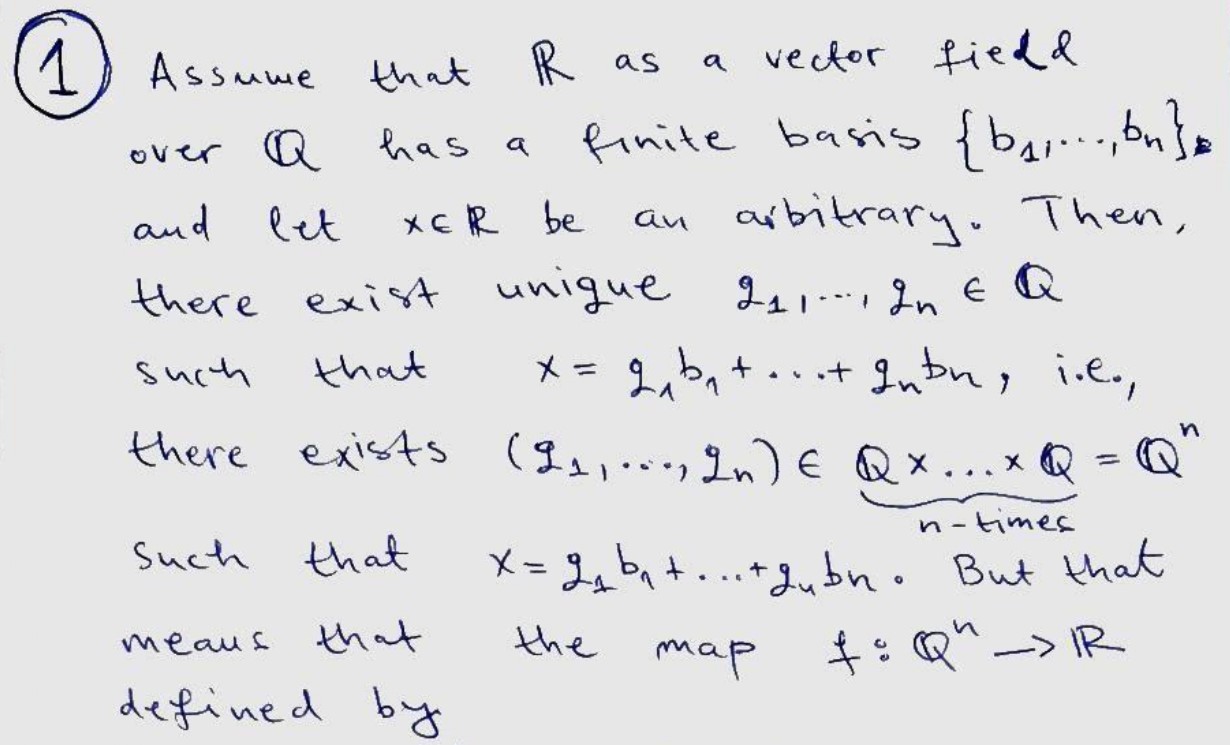 1 Assume that ℝ as a vector field
over ℚ has a finite basis {b₁,...,bₙ}.
and let x∈ℝ be an arbitrary. Then,
there exist unique q₁,...,qₙ ∈ ℚ
such that x = q₁b₁+...+qₙbₙ, i.e.,
there exists (q₁,...,qₙ) ∈ ℚ×...×ℚ = ℚⁿ
n-times
such that x = q₁b₁+...+qₙbₙ. But that
means that the map f: ℚⁿ → ℝ
defined by